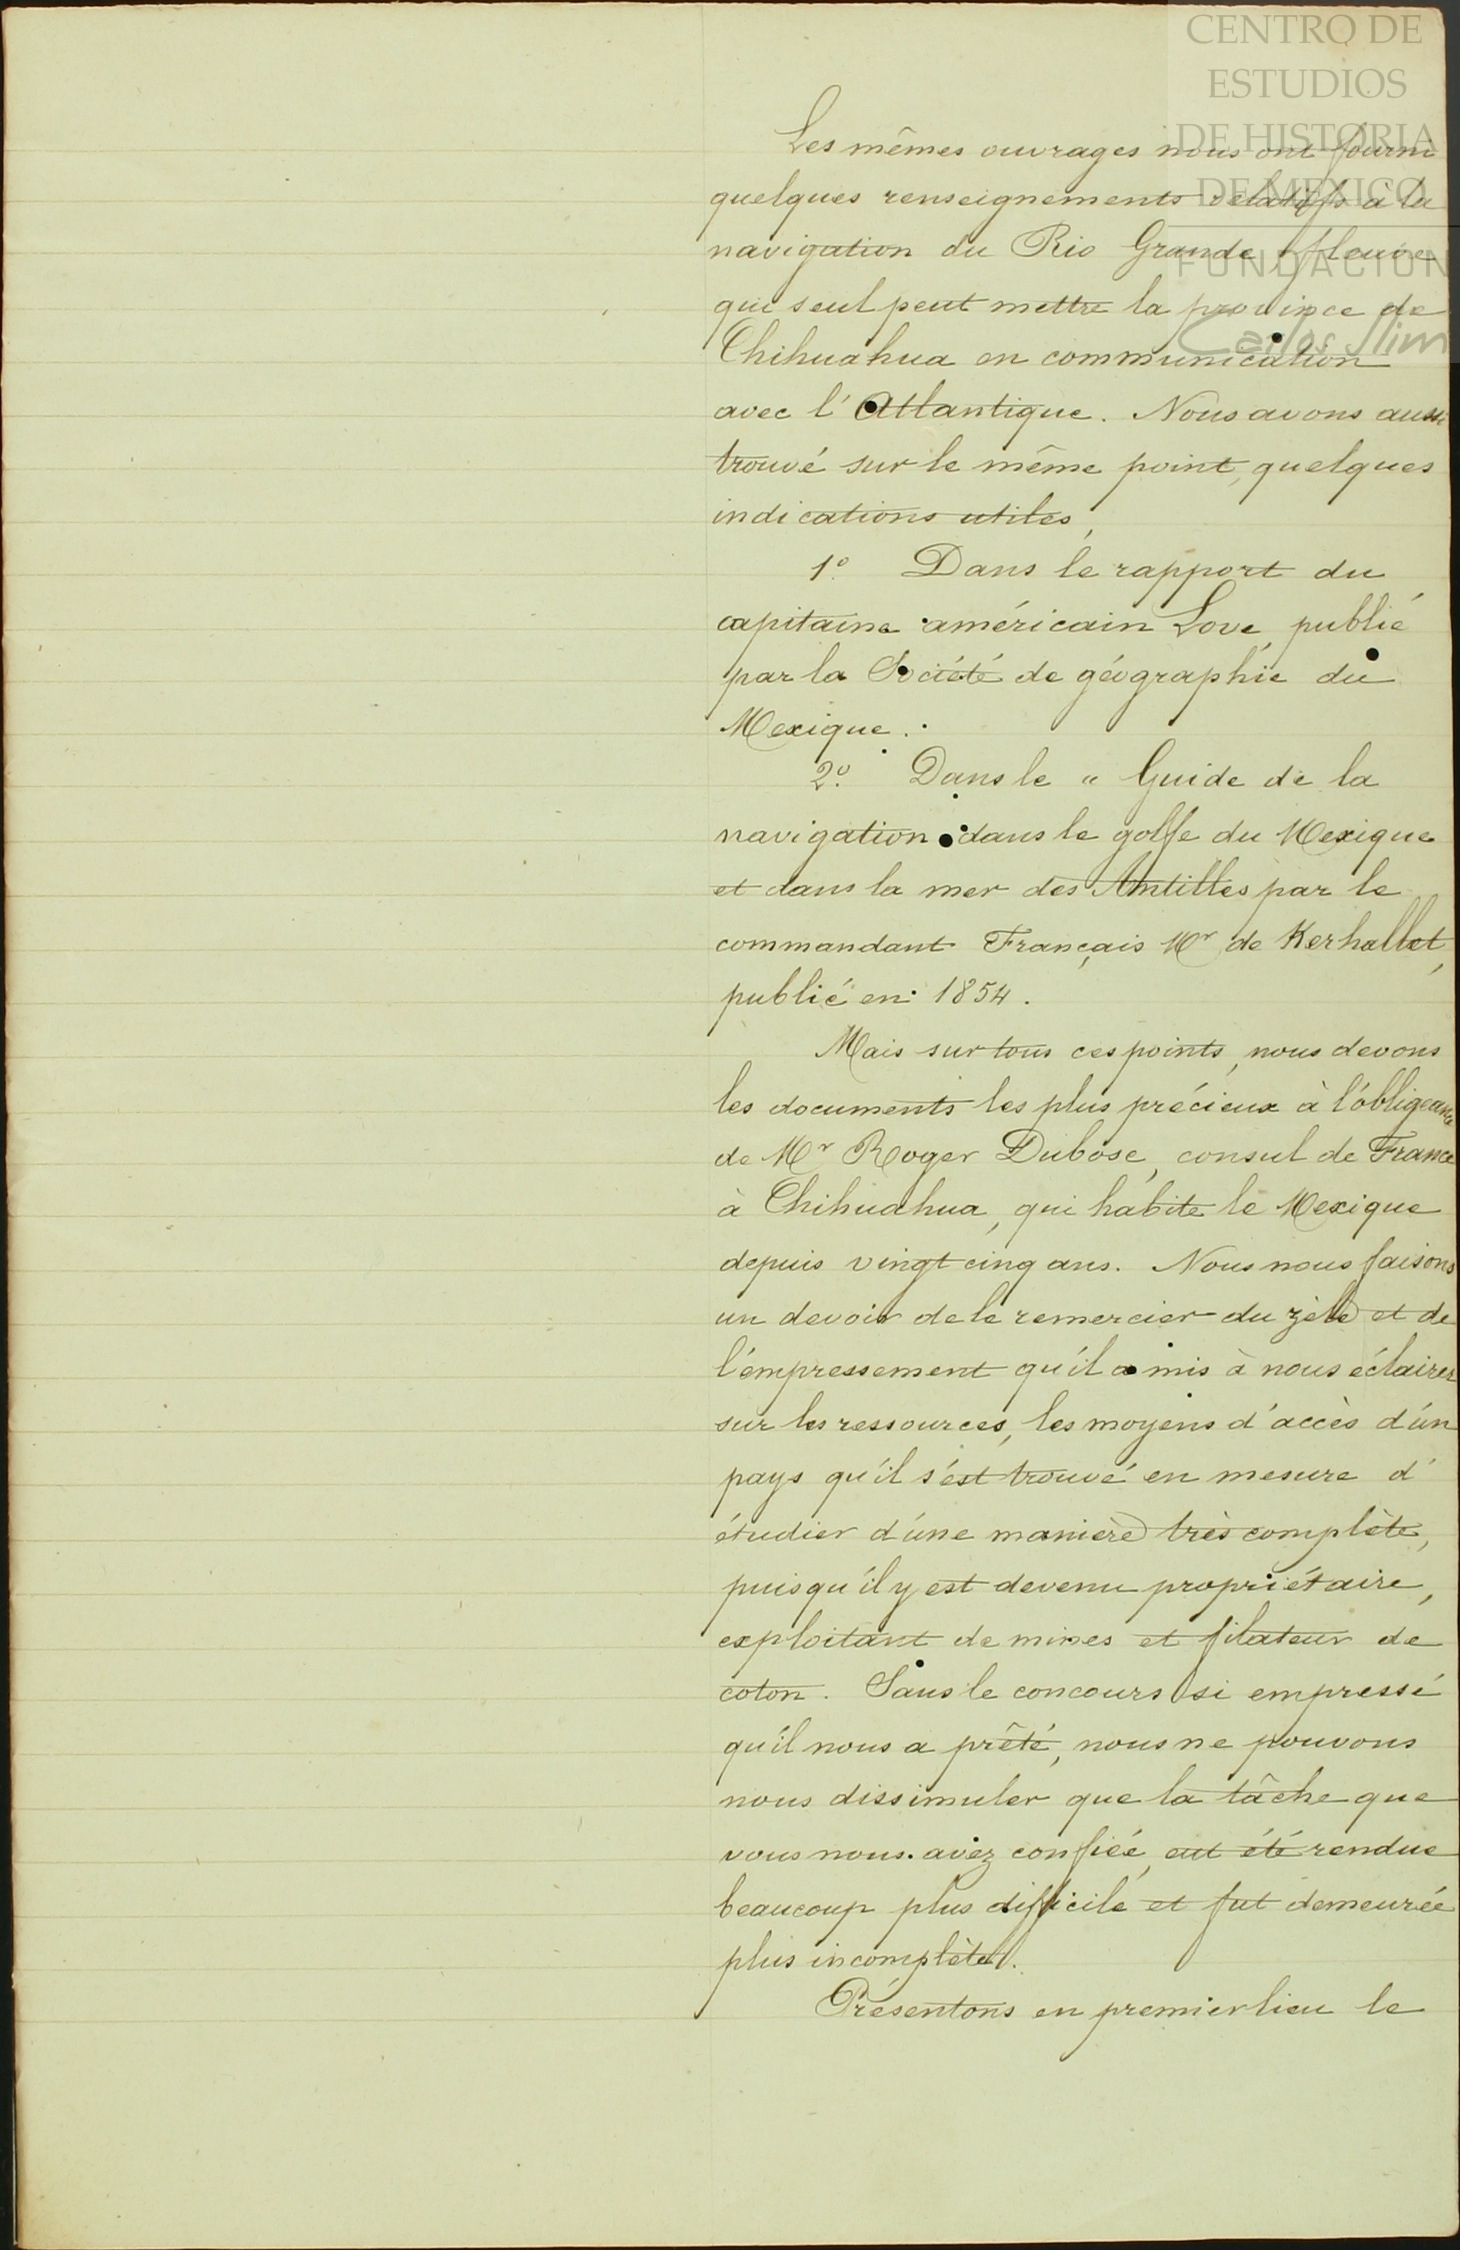 CENTRO DE
ESTUDIOS
DE HISTORIA
DE MEXICO
FUNDACION
Carlos Slim
Les mêmes ouvrages nous ont fourni
quelques renseignements relatifs à la
navigation du Rio Grande, fleuve
qui seul peut mettre la province de
Chihuahua en communication
avec l'Atlantique. Nous avons aussi
trouvé sur le même point, quelques
indications utiles,
1º Dans le rapport du
capitaine américain Love, publié
par la Société de géographie du
Mexique.
2º Dans le " Guide de la
navigation dans le golfe du Mexique
et dans la mer des Antilles par le
commandant Français Mr de Kerhallet,
publié en 1854.
Mais sur tous ces points, nous devons
les documents les plus précieux à l'obligeance
de Mr Roger Dubose, consul de France
à Chihuahua, qui habite le Mexique
depuis vingt cinq ans. Nous nous faisons
un devoir de le remercier du zèle et de
l'empressement qu'il a mis à nous éclairer
sur les ressources, les moyens d'accès d'un
pays qu'il s'est trouvé en mesure d'
étudier d'une manière très complète,
puisqu'il y est devenu propriétaire,
exploitant de mines et filateur de
coton. Sans le concours si empressé
qu'il nous a prêté, nous ne pouvons
nous dissimuler que la tâche que
vous nous avez confiée, eut été rendue
beaucoup plus difficile et fut demeurée
plus incomplète.
Présentons en premier lieu le